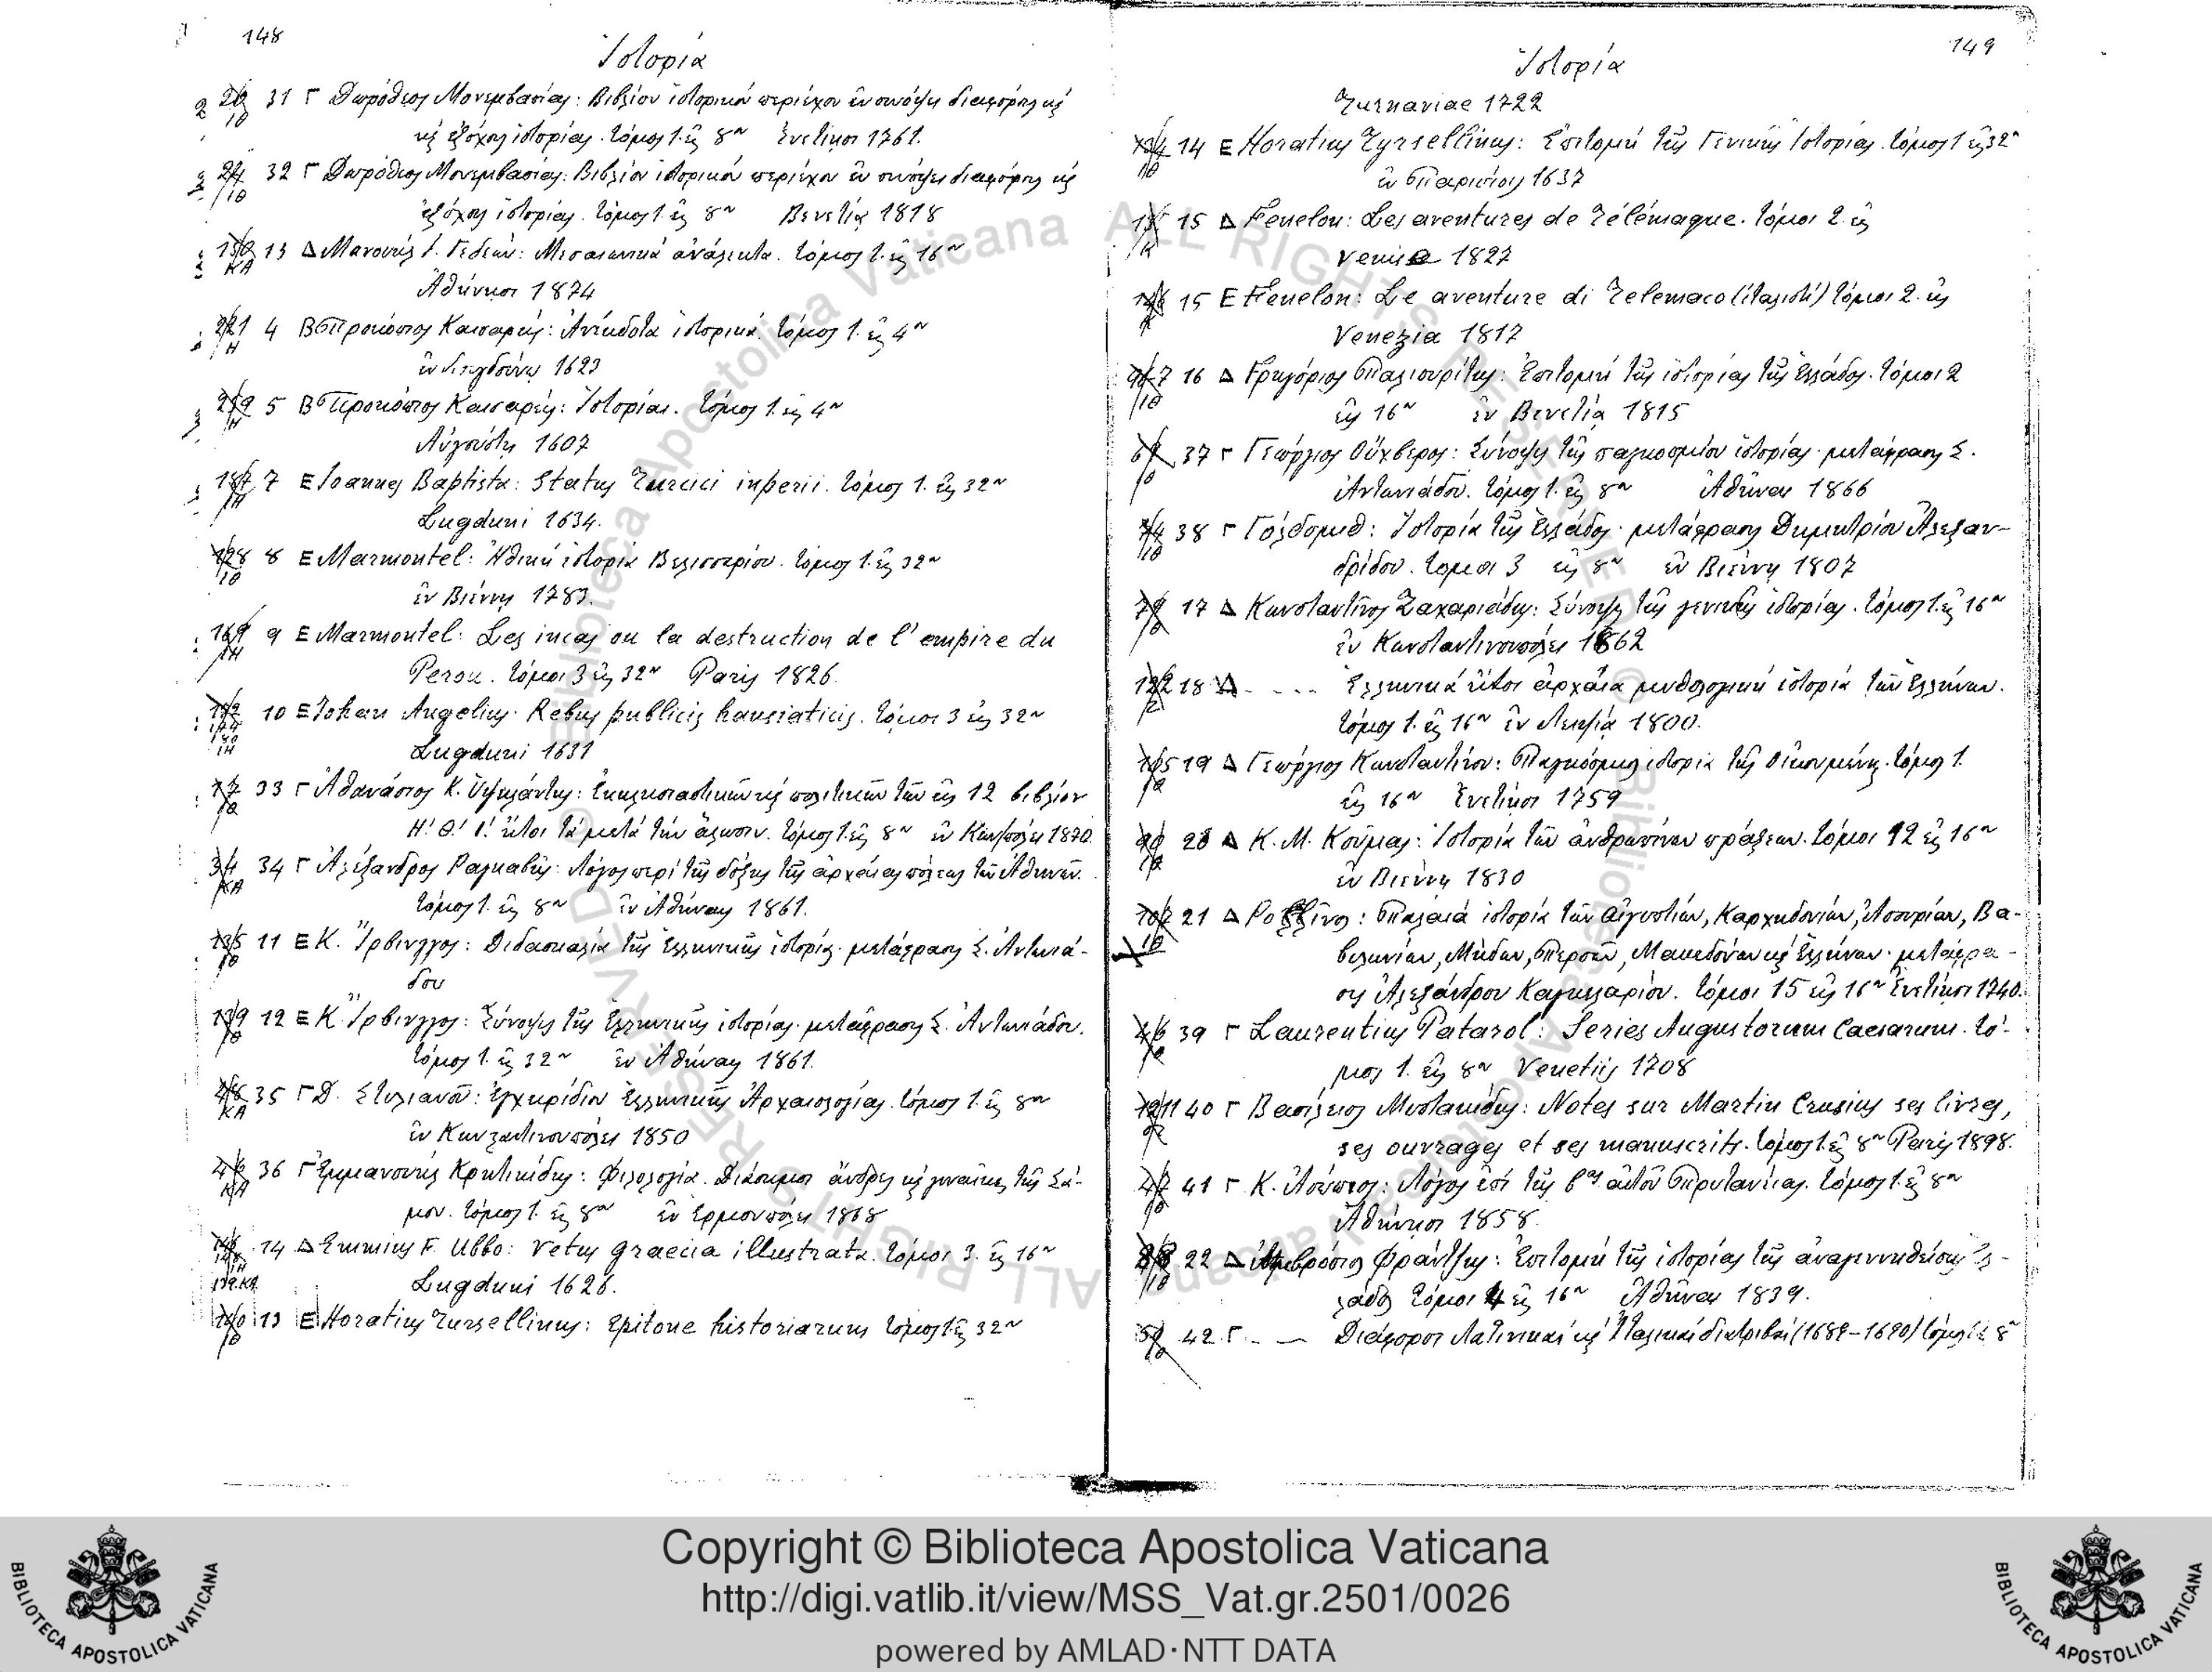 148
Ἱστορία
31 Γ Δωρόθεος Μονεμβασίας: Βιβλίον ἱστορικόν περιέχον ἐν συνόψει διαφόρους κ
κ ἐξόχους ἱστορίας. τόμος 1. εἰς 8ον Ἐνετίησι 1761.
32 Γ Δωρόθεος Μονεμβασίας: Βιβλίον ἱστορικόν περιέχον ἐν συνόψει διαφόρους κ
ἐξόχους ἱστορίας. τόμος 1. εἰς 8ον Βενετία 1818
13 Δ Μανουήλ Ι. Γεδεών: Μεσαιωνικά ἀνάλεκτα. τόμος 1. εἰς 16ον
Ἀθήνησι 1874
4 Β Προκόπιος Καισαρεύς: Ἀνέκδοτα ἱστορικά. τόμος 1. εἰς 4ον
ἐν Λουγδούνῳ 1623
5 Β Προκόπιος Καισαρεύς: Ἱστορίαι. τόμος 1. εἰς 4ον
Αὐγούστῃ 1607
7 Ε Ioannes Baptista: Status Turcici inperii. τόμος 1. εἰς 32ον
Lugduni 1634.
8 Ε Marmontel: Ἠθική ἱστορία Βελισσαρίου. τόμος 1. εἰς 32ον
ἐν Βιέννῃ 1783.
9 Ε Marmontel: Les incas ou la destruction de l'empire du
Perou. τόμοι 3 εἰς 32ον Paris 1826.
10 Ε Johan Angelius: Rebus publicis hansiaticis. τόμοι 3 εἰς 32ον
Lugduni 1631
33 Γ Ἀθανάσιος Κ. Ὑψηλάντης: Ἐκκλησιαστικῶν κ πολιτικῶν τῶν εἰς 12 βιβλίον
Η! Θ! Ι! ἤτοι τά μετά τήν ἅλωσιν. τόμος 1. εἰς 8ον ἐν Κων/πόλει 1870.
34 Γ Ἀλέξανδρος Ραγκαβῆς: Λόγος περί τῆς δόξης τῆς ἀρχαίας πόλεως τῶν Ἀθηνῶν.
τόμος 1. εἰς 8ον ἐν Ἀθήναις 1861.
11 Ε Κ. Ἴρβινγγος: Διδασκαλία τῆς Ἑλληνικῆς ἱστορίας. μετάφρασις Σ. Ἀντωνιά-
δου
12 Ε Κ. Ἴρβινγγος: Σύνοψις τῆς Ἑλληνικῆς ἱστορίας. μετάφρασις Σ. Ἀντωνιάδου.
τόμος 1. εἰς 32ον ἐν Ἀθήναις 1861.
35 Γ Δ. Στυλιανοῦ: Ἐγχειρίδιον Ἑλληνικῆς Ἀρχαιολογίας. τόμος 1. εἰς 8ον
ἐν Κωνσταντινουπόλει 1850
36 Γ Ἐμμανουήλ Κρητικίδης: Φιλολογία. Διάσημοι ἄνδρες κ γυναῖκες τῆς Σά-
μου. τόμος 1. εἰς 8ον ἐν Ἑρμουπόλει 1868
14 Δ Emmius F. Ubbo: Vetus graecia illustrata. τόμοι 3. εἰς 16ον
Lugduni 1626.
13 Ε Horatius Tursellinus: Epitone historiarum τόμος 1. εἰς 32ον
149
Ἱστορία
Turnaviae 1722
14 Ε Horatius Tyrsellinus: Ἐπιτομή τῆς Γενικῆς Ἱστορίας. τόμος 1 εἰς 32ον
ἐν Παρισίοις 1637
15 Δ Fenelon: Les aventures de Télémaque. τόμοι 2. εἰς
Venise 1827
15 Ε Fenelon: Le aventure di Telemaco (ἰταλιστί) τόμοι 2. εἰς
Venezia 1817
16 Δ Γρηγόριος Παλιουρίτης: Ἐπιτομή τῆς ἱστορίας τῆς Ἑλλάδος. τόμοι 2
εἰς 16ον ἐν Βενετία 1815
37 Γ Γεώργιος Οὔχβερος: Σύνοψις τῆς παγκοσμίου ἱστορίας. μετάφρασις Σ.
Ἀντωνιάδου. τόμος 1. εἰς 8ον Ἀθῆναι 1866
38 Γ Γόλδσμιθ: Ἱστορία τῆς Ἑλλάδος. μετάφρασις Δημητρίου Ἀλεξαν-
δρίδου. τόμοι 3 εἰς 8ον ἐν Βιέννῃ 1807
17 Δ Κωνσταντῖνος Ζαχαριάδης: Σύνοψις τῆς γενικῆς ἱστορίας. τόμος 1. εἰς 16ον
ἐν Κωνσταντινουπόλει 1862
18 Δ .... Ἑλληνικά ἤτοι ἀρχαία μυθολογική ἱστορία τῶν Ἑλλήνων.
τόμος 1. εἰς 16ον ἐν Λειψία 1800.
19 Δ Γεώργιος Κωνσταντίνου: Παγκόσμιος ἱστορία τῆς Οἰκουμένης. τόμος 1.
εἰς 16ον Ἐνετίησι 1759
20 Δ Κ. Μ. Κούμας: Ἱστορία τῶν ἀνθρωπίνων πράξεων. τόμοι 12 εἰς 16ον
ἐν Βιέννῃ 1830
21 Δ Ρολλῖνος: Παλαιά ἱστορία τῶν Αἰγυπτίων, Καρχηδονίων, Ἀσσυρίων, Βα-
βυλωνίων, Μήδων, Περσῶν, Μακεδόνων κ Ἑλλήνων. μετάφρα-
σις Ἀλεξάνδρου Καγκελαρίου. τόμοι 15 εἰς 16ον Ἐνετίησι 1740.
39 Γ Laurentius Patarol: Series Augustorum Caesarum. τό-
μος 1. εἰς 8ον Venetiis 1708
40 Γ Βασίλειος Μυστακίδης: Notes sur Martin Crusius ses livres,
ses ouvrages et ses manuscrits. τόμος 1. εἰς 8ον Paris 1898.
41 Γ Κ. Ἀσώπιος: Λόγος ἐπί τῆς βας αὐτοῦ Πρυτανείας. τόμος 1. εἰς 8ον
Ἀθήνησι 1858.
22 Δ Ἀμβρόσιος Φράντζης: Ἐπιτομή τῆς ἱστορίας τῆς ἀναγεννηθείσης Ἑλ-
λάδος τόμοι 4 εἰς 16ον Ἀθῆναι 1839.
42 Γ .. — Διάφοροι Λατινικαί κ Ἰταλικαί διατριβαί (1689-1690) τόμος 1. εἰς 8ον
Copyright © Biblioteca Apostolica Vaticana
http://digi.vatlib.it/view/MSS_Vat.gr.2501/0026
powered by AMLAD·NTT DATA
BIBLIOTECA APOSTOLICA VATICANA
BIBLIOTECA APOSTOLICA VATICANA